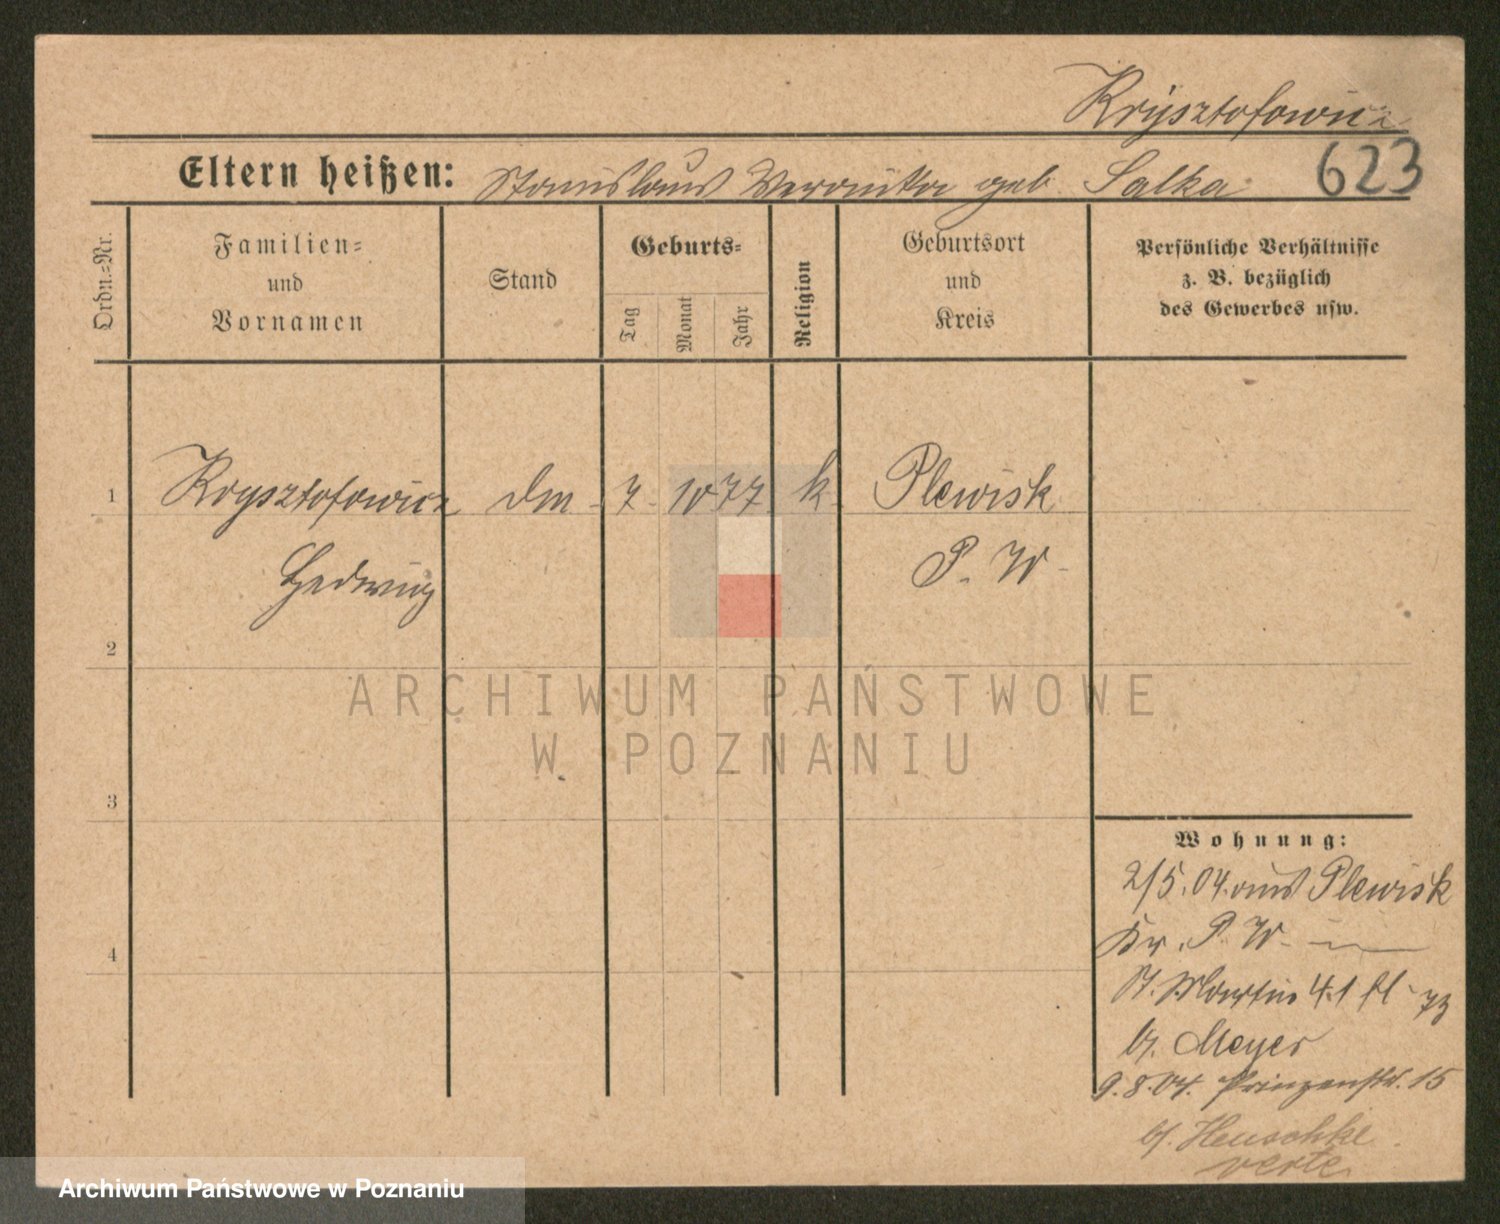 Krysztofowicz
Eltern heißen: Stanislaus Veronika geb. Salka 623
Ordn.=Nr.
Familien=
und
Vornamen
Stand
Geburts=
Tag
Monat
Jahr
Religion
Geburtsort
und
Kreis
Persönliche Verhältnisse
z. B. bezüglich
des Gewerbes usw.
1 Krysztofowicz 7. 10 77 k. Plewisk
Hedwig P. W.
2
3
4
Wohnung:
2/5.04. aus Plewisk
Kr. P. W.
St. Martin 41
b/. Meyer
9.8.04. Prinzenstr. 15
b/. Heuschke
verte
ARCHIWUM PAŃSTWOWE
W POZNANIU
Archiwum Państwowe w Poznaniu